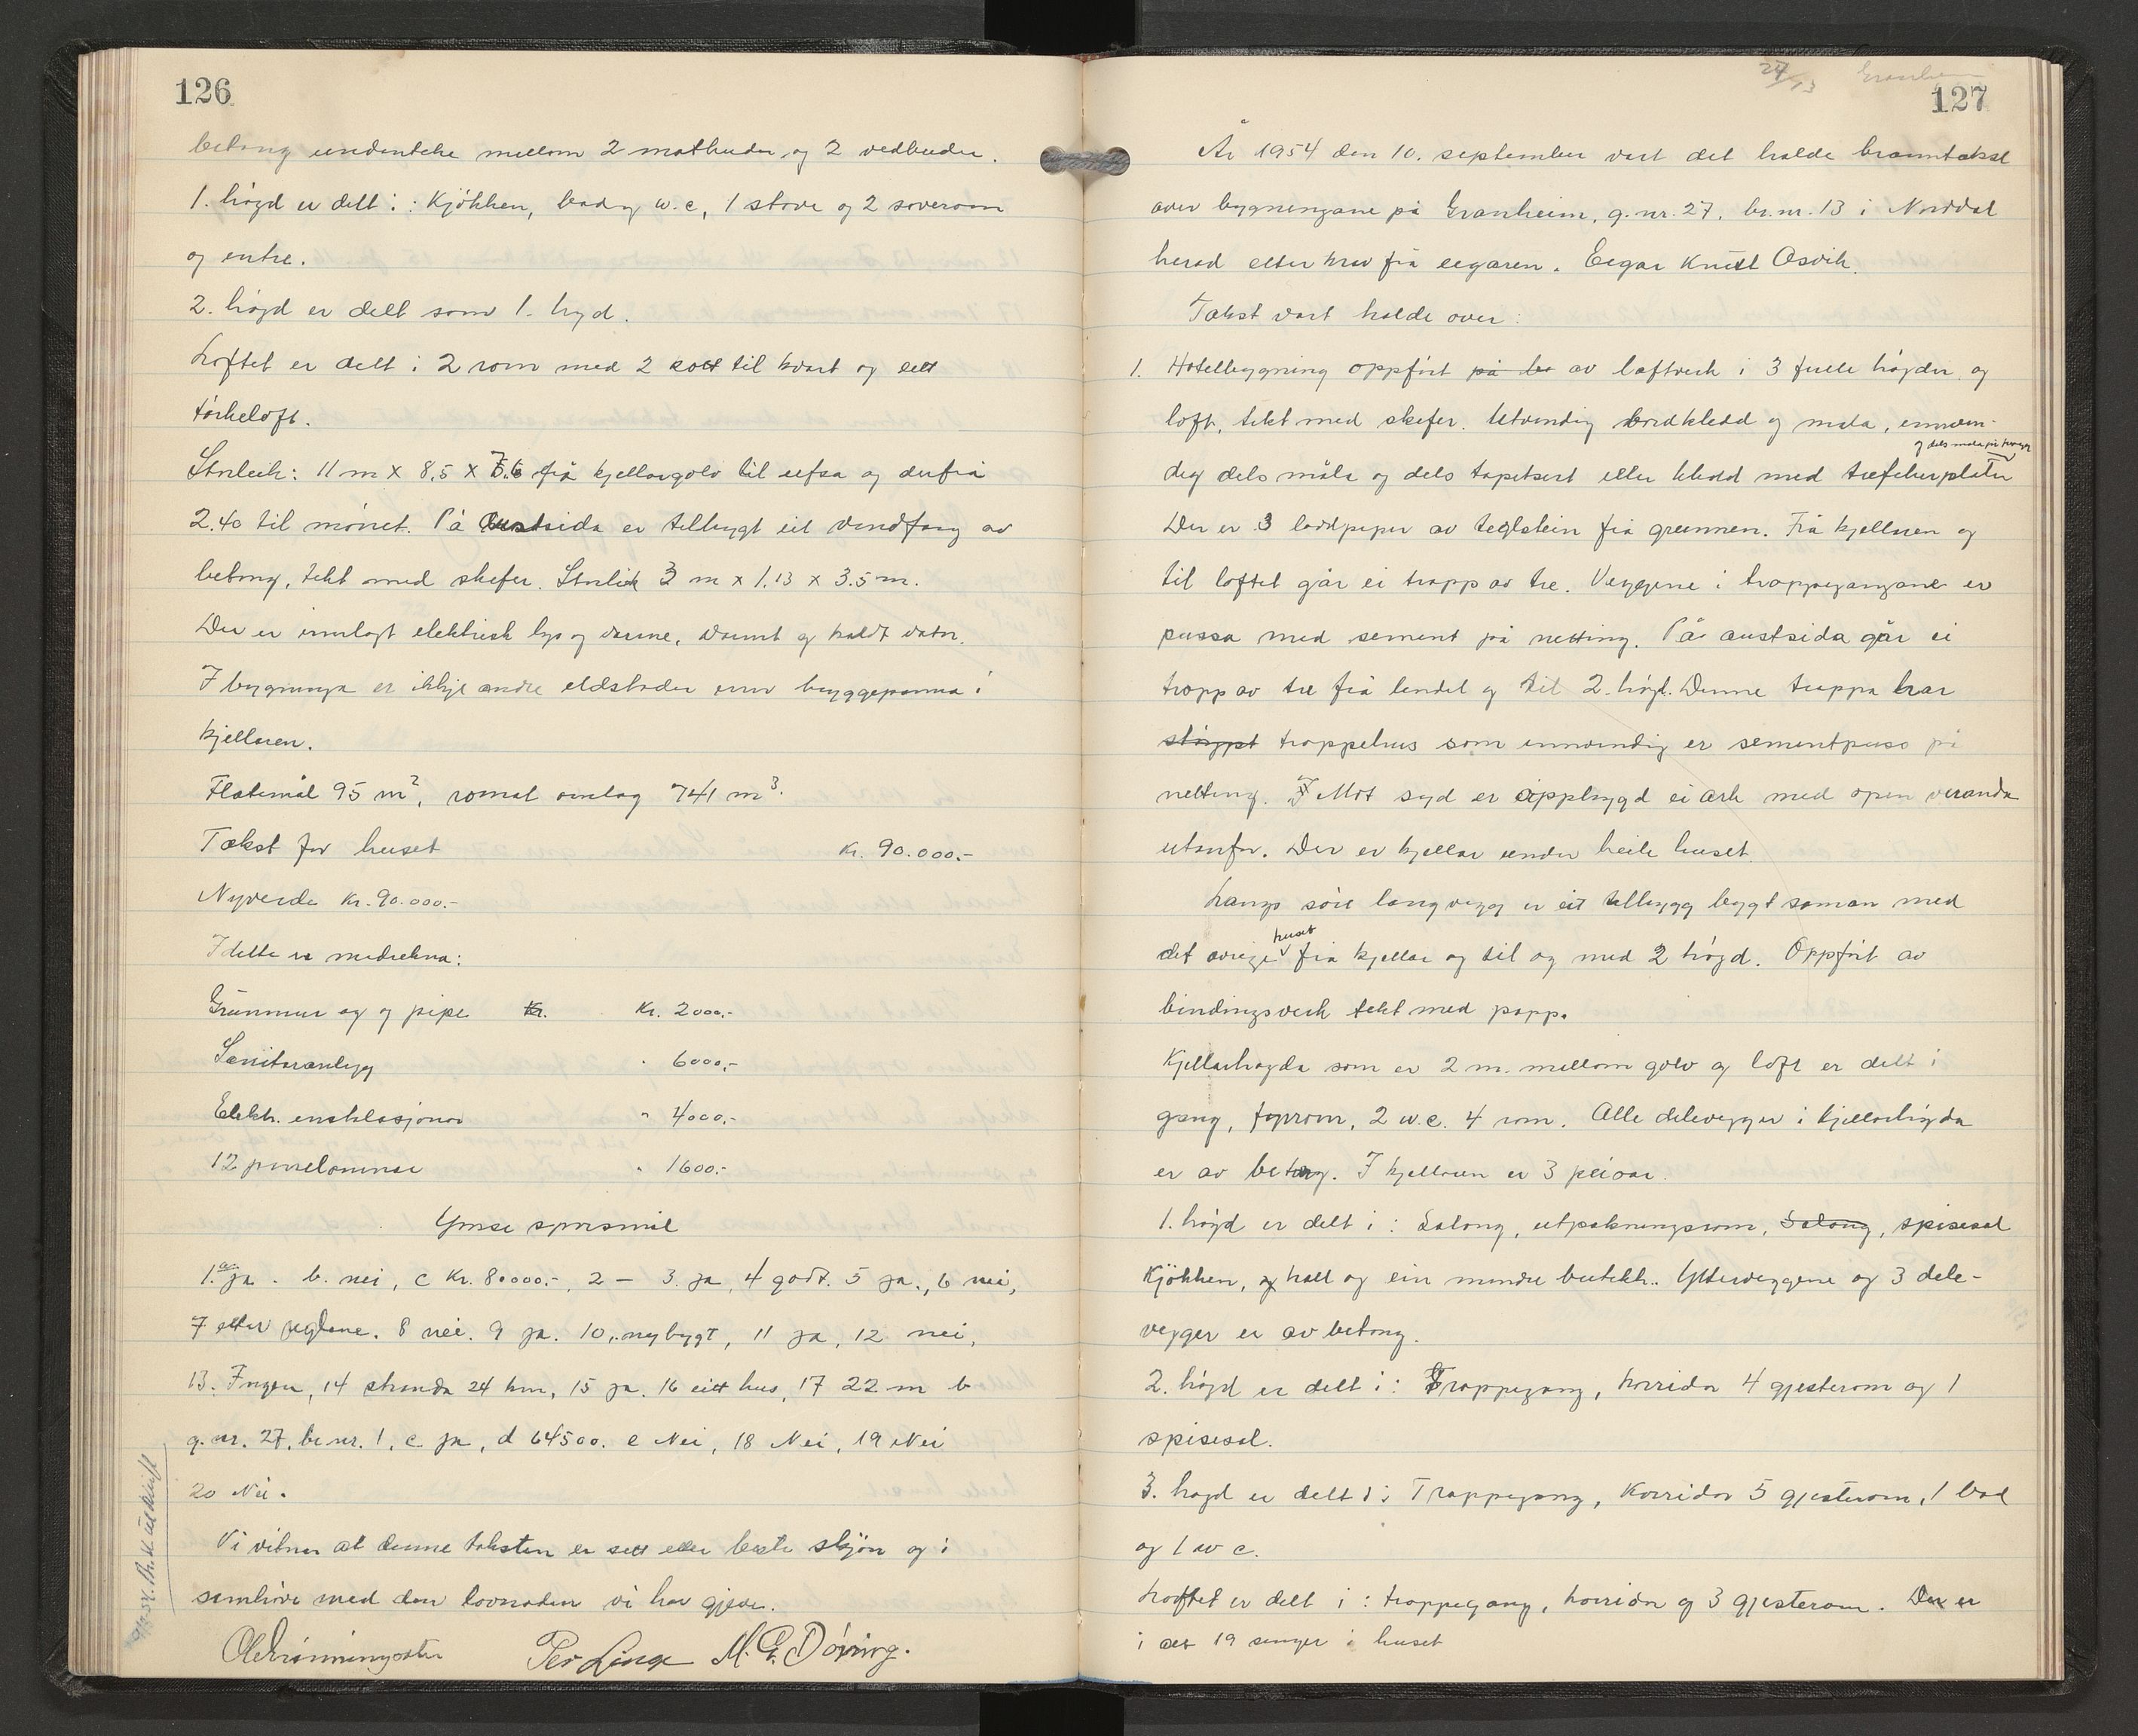 126
betong undenteke mellom 2 matbuder og 2 vedbuder.
1. högd er delt i: Kjökken, bad og w.c, 1 stove og 2 soverom
og entre.
2. högd er delt som 1. hygd.
Loftet er delt i 2 rom med 2 kott til kvart og eitt
törkeloft.
Storleik: 11 m x 8,5 x 7.6 frå kjellargolv til ufsa og derfrå
2.40 til mönet. På austsida er tilbygt eit vindfang av
betong, tekt med skifer. Storleik 3 m x 1.13 x 3.5 m.
Der er innlagt elektrisk lys og varme, varmt og kaldt vatn.
I bygninga er ikkje andre eldstader enn bryggepanna i
kjellaren.
Flatemål 95 m², romal omlag 741 m³.
Takst for huset Kr. 90.000.-
Nyverde Kr. 90.000.-
I dette er medrekna:
Grunnmur og og pipe Kr. Kr. 2000.-
Sanitæranlegg " 6000.-
Elekt. installasjonar " 4000.-
12 panelomnar " 1600.-
Ymse spursmål
1. a ja. b. nei, c Kr. 80000.-, 2 - 3. ja, 4 godt. 5 ja., 6 nei,
7 etter reglane. 8 nei. 9 ja. 10. nybygt, 11 ja, 12 nei,
13. Ingen, 14 stranda 24 km, 15 ja. 16 eitt hus, 17 22 m b
g.nr. 27, br.nr. 1, c ja, d 64500. e Nei, 18 Nei, 19 Nei
20 Nei.
Vi vitner at denne taksten er sett etter beste skjön og i
samhöve med den lovnaden vi har gjeve.
Per Linge M. G. Döving.
127
27/13 Granheim
År 1954 den 10. september vart det halde branntakst
over bygningane på Granheim, g.nr. 27, br.nr. 13 i Norddal
herad etter krav frå eigaren. Eigar Knut Osvik.
Takst vart halde over:
1. Hotellbygning oppfört på be av laftverk i 3 fulle högder og
loft, tekt med skifer. Utvendig bordkledd og mala, innven-
og dels mala på
dig dels måla og dels tapetsert eller kledd med trefiberplater
Der er 3 loddpiper av teglstein frå grunnen. Frå kjellaren og
til loftet går ei trapp av tre. Veggene i trappegangane er
pussa med sement på netting. På austsida går ei
trapp av tre frå lendet og til 2. högd. Denne trappa har
støypt trappehus som innvendig er sementpuss på
netting. Mot syd er oppbygd ei ark med open veranda
utanfor. Der er kjellar under heile huset.
Langs söre langvegg er eit tilbygg bygt saman med
huset
det övrige frå kjellar og til og med 2 högd. Oppfört av
bindingsverk tekt med papp.
Kjellarhögda som er 2 m. mellom golv og loft er delt i
gang, fyrrom, 2 w.c. 4 rom. Alle delevegger i kjellarhögda
er av betong. I kjellaren er 3 peisar.
1. högd er delt i: Salong, utpakningsrom, Salong, spisesal
Kjökken, og hall og ein mindre butikk. Ytterveggene og 3 dele-
vegger er av betong.
2. högd er delt i: Trappegang, korridor 4 gjesterom og 1
spisesal.
3. hogd er delt i: Trappegang, Korridor 5 gjesterom, 1 bad
og 1 w c.
Loftet er delt i: trappegang, korridor og 3 gjesterom. Der er
i alt 19 senger i huset